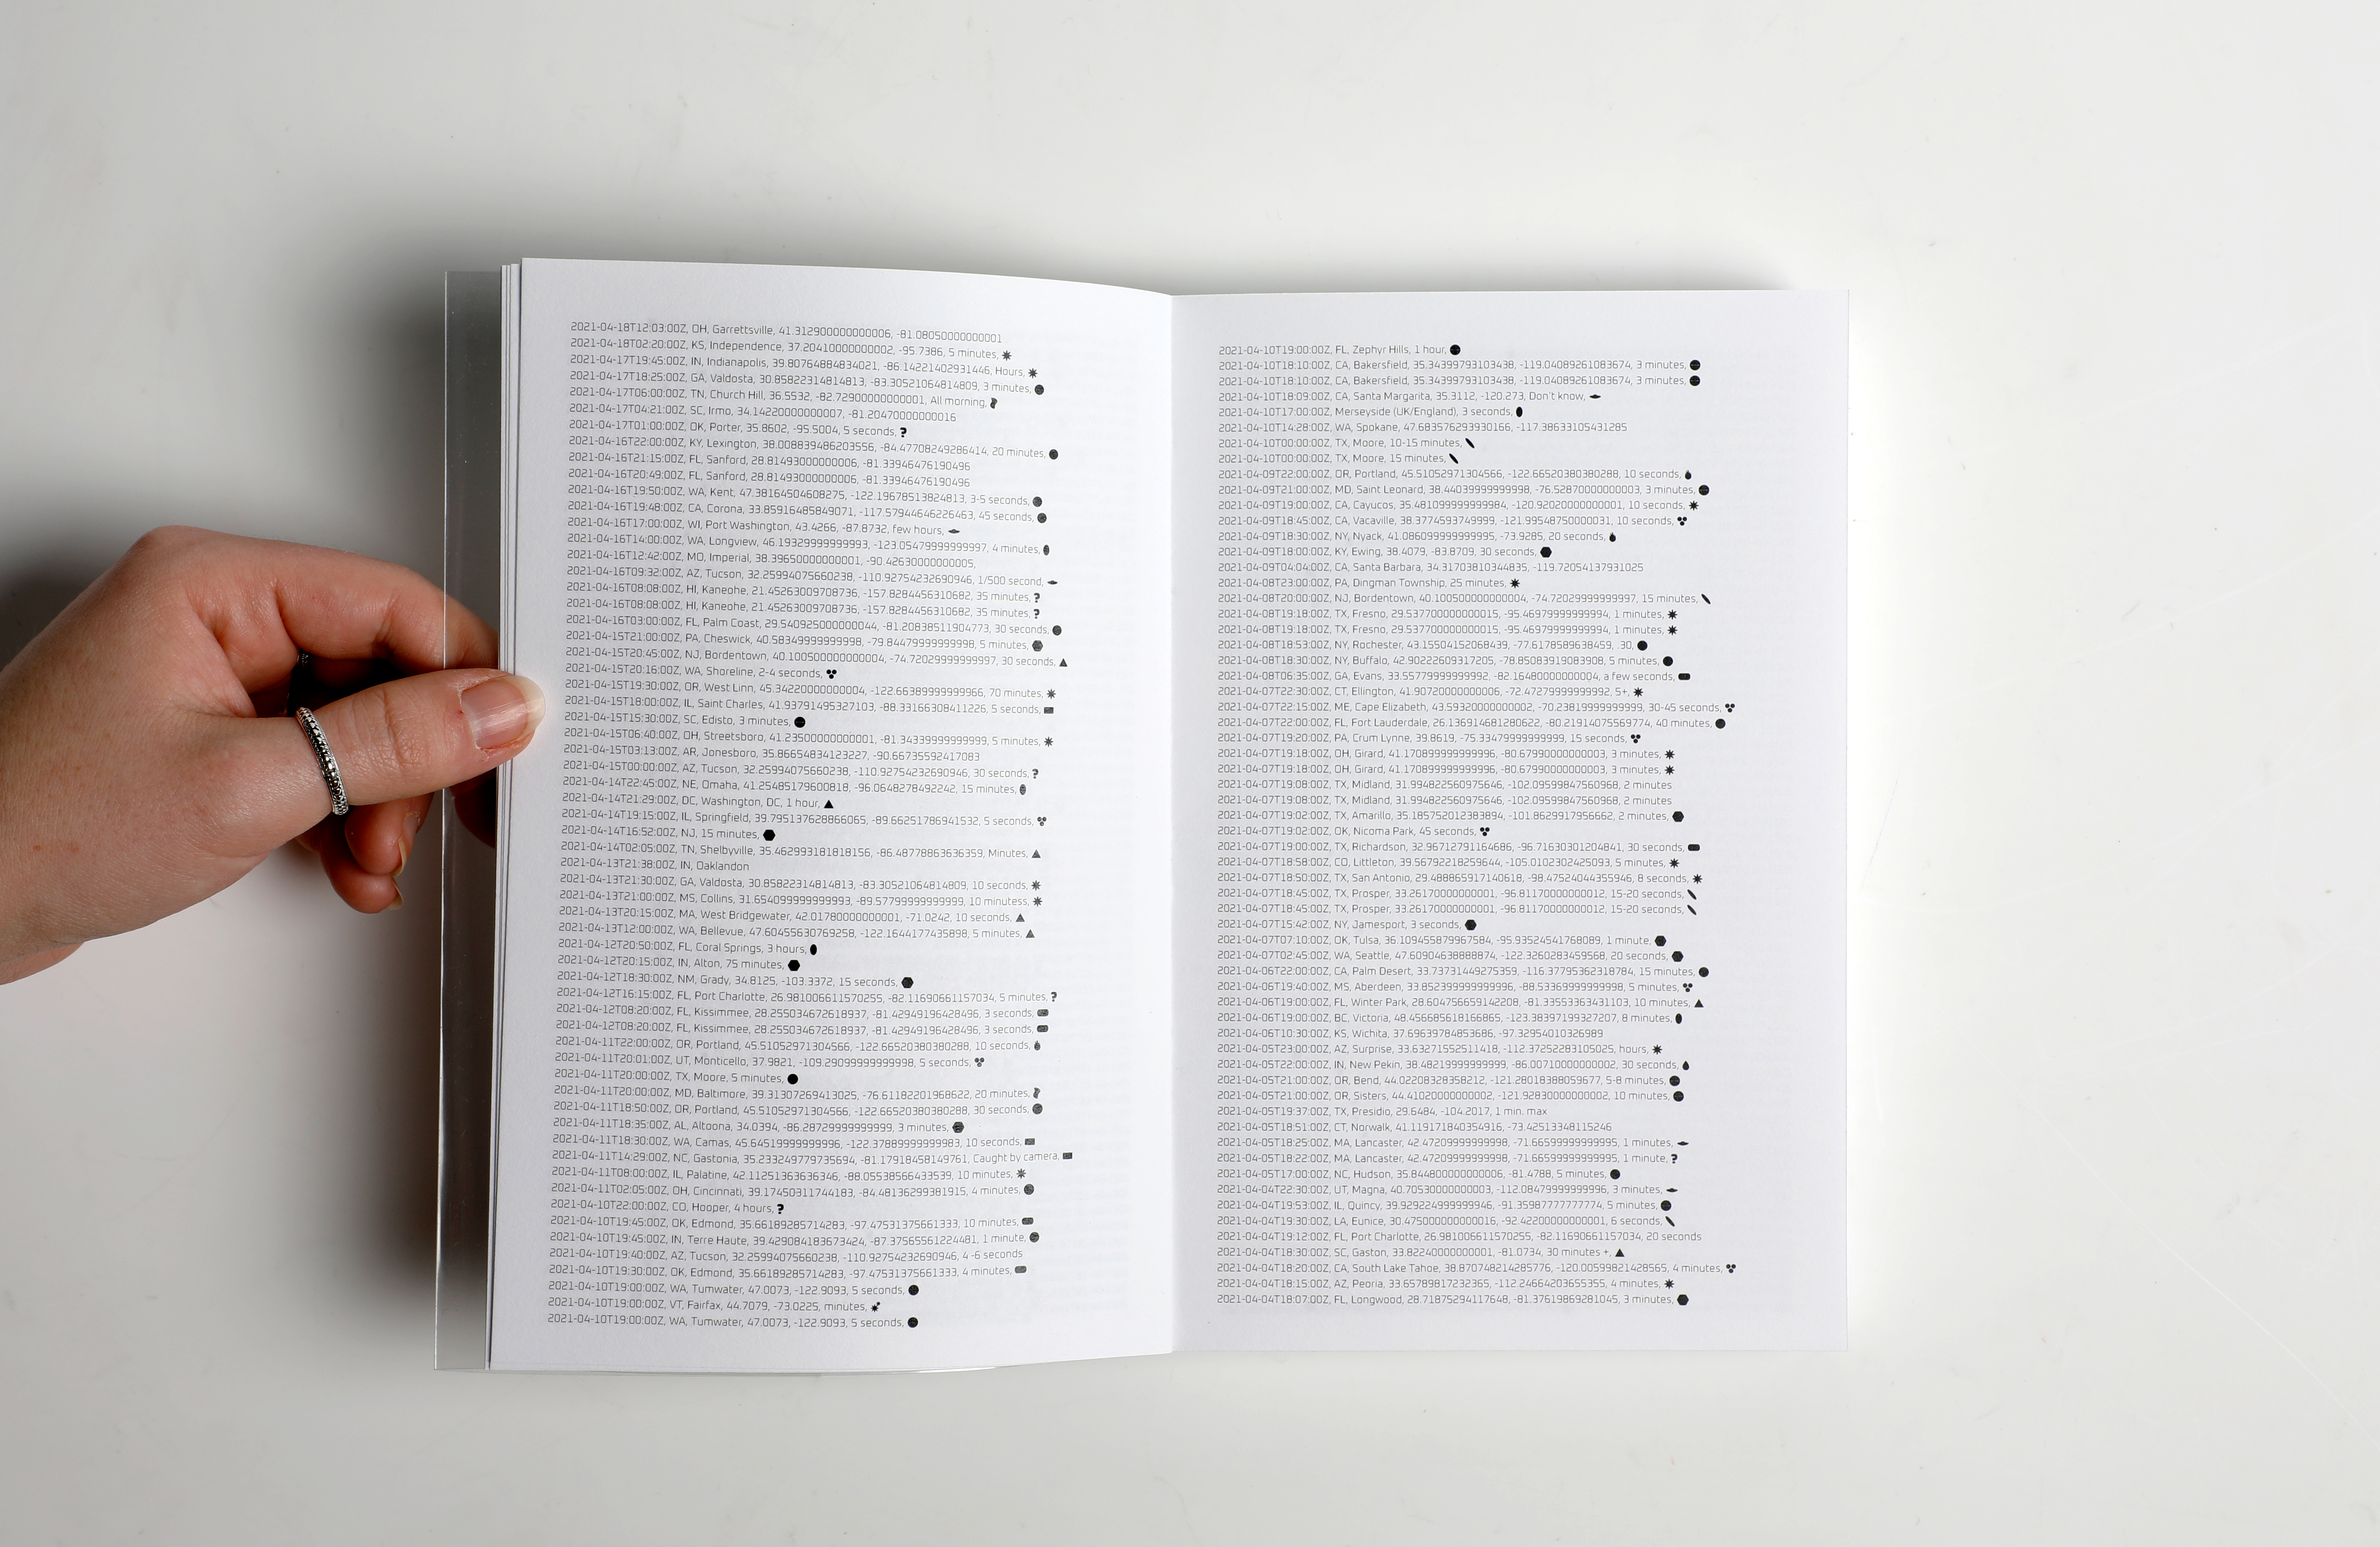 2021-04-18T12:03:00Z, OH, Garrettsville, 41.312900000000006, -81.08050000000001
2021-04-18T02:20:00Z, KS, Independence, 37.20410000000002, -95.7386, 5 minutes,
2021-04-17T19:45:00Z, IN, Indianapolis, 39.80764884834021, -86.14221402931446, Hours,
2021-04-17T18:25:00Z, GA, Valdosta, 30.85822314814813, -83.30521064814809, 3 minutes,
2021-04-17T06:00:00Z, TN, Church Hill, 36.5532, -82.72900000000001, All morning,
2021-04-17T04:21:00Z, SC, Irmo, 34.14220000000007, -81.20470000000016
2021-04-17T01:00:00Z, OK, Porter, 35.8602, -95.5004, 5 seconds, ?
2021-04-16T22:00:00Z, KY, Lexington, 38.008839486203556, -84.47708249286414, 20 minutes,
2021-04-16T21:15:00Z, FL, Sanford, 28.81493000000006, -81.33946476190496
2021-04-16T20:49:00Z, FL, Sanford, 28.81493000000006, -81.33946476190496
2021-04-16T19:50:00Z, WA, Kent, 47.38164504608275, -122.19678513824813, 3-5 seconds,
2021-04-16T19:48:00Z, CA, Corona, 33.85916485849071, -117.57944646226463, 45 seconds,
2021-04-16T17:00:00Z, WI, Port Washington, 43.4266, -87.8732, few hours,
2021-04-16T14:00:00Z, WA, Longview, 46.19329999999993, -123.05479999999997, 4 minutes,
2021-04-16T12:42:00Z, MO, Imperial, 38.39650000000001, -90.42630000000005,
2021-04-16T09:32:00Z, AZ, Tucson, 32.25994075660238, -110.92754232690946, 1/500 second,
2021-04-16T08:08:00Z, HI, Kaneohe, 21.45263009708736, -157.8284456310682, 35 minutes, ?
2021-04-16T08:08:00Z, HI, Kaneohe, 21.45263009708736, -157.8284456310682, 35 minutes, ?
2021-04-16T03:00:00Z, FL, Palm Coast, 29.540925000000044, -81.20838511904773, 30 seconds,
2021-04-15T21:00:00Z, PA, Cheswick, 40.58349999999998, -79.84479999999998, 5 minutes,
2021-04-15T20:45:00Z, NJ, Bordentown, 40.100500000000004, -74.72029999999997, 30 seconds,
2021-04-15T20:16:00Z, WA, Shoreline, 2-4 seconds,
2021-04-15T19:30:00Z, OR, West Linn, 45.34220000000004, -122.66389999999966, 70 minutes,
2021-04-15T18:00:00Z, IL, Saint Charles, 41.93791495327103, -88.33166308411226, 5 seconds,
2021-04-15T15:30:00Z, SC, Edisto, 3 minutes,
2021-04-15T06:40:00Z, OH, Streetsboro, 41.23500000000001, -81.34339999999999, 5 minutes,
2021-04-15T03:13:00Z, AR, Jonesboro, 35.86654834123227, -90.66735592417083
2021-04-15T00:00:00Z, AZ, Tucson, 32.25994075660238, -110.92754232690946, 30 seconds, ?
2021-04-14T22:45:00Z, NE, Omaha, 41.25485179600818, -96.0648278492242, 15 minutes,
2021-04-14T21:29:00Z, DC, Washington, DC, 1 hour,
2021-04-14T19:15:00Z, IL, Springfield, 39.795137628866065, -89.66251786941532, 5 seconds,
2021-04-14T16:52:00Z, NJ, 15 minutes,
2021-04-14T02:05:00Z, TN, Shelbyville, 35.462993181818156, -86.48778863636359, Minutes,
2021-04-13T21:38:00Z, IN, Oaklandon
2021-04-13T21:30:00Z, GA, Valdosta, 30.85822314814813, -83.30521064814809, 10 seconds,
2021-04-13T21:00:00Z, MS, Collins, 31.654099999999993, -89.57799999999999, 10 minutess,
2021-04-13T20:15:00Z, MA, West Bridgewater, 42.01780000000001, -71.0242, 10 seconds,
2021-04-13T12:00:00Z, WA, Bellevue, 47.60455630769258, -122.1644177435898, 5 minutes,
2021-04-12T20:50:00Z, FL, Coral Springs, 3 hours,
2021-04-12T20:15:00Z, IN, Alton, 75 minutes,
2021-04-12T18:30:00Z, NM, Grady, 34.8125, -103.3372, 15 seconds,
2021-04-12T16:15:00Z, FL, Port Charlotte, 26.981006611570255, -82.11690661157034, 5 minutes, ?
2021-04-12T08:20:00Z, FL, Kissimmee, 28.255034672618937, -81.42949196428496, 3 seconds,
2021-04-12T08:20:00Z, FL, Kissimmee, 28.255034672618937, -81.42949196428496, 3 seconds,
2021-04-11T22:00:00Z, OR, Portland, 45.51052971304566, -122.66520380380288, 10 seconds,
2021-04-11T20:01:00Z, UT, Monticello, 37.9821, -109.29099999999998, 5 seconds,
2021-04-11T20:00:00Z, TX, Moore, 5 minutes,
2021-04-11T20:00:00Z, MD, Baltimore, 39.31307269413025, -76.61182201968622, 20 minutes,
2021-04-11T18:50:00Z, OR, Portland, 45.51052971304566, -122.66520380380288, 30 seconds,
2021-04-11T18:35:00Z, AL, Altoona, 34.0394, -86.28729999999999, 3 minutes,
2021-04-11T18:30:00Z, WA, Camas, 45.64519999999996, -122.37889999999983, 10 seconds,
2021-04-11T14:29:00Z, NC, Gastonia, 35.233249779735694, -81.17918458149761, Caught by camera,
2021-04-11T08:00:00Z, IL, Palatine, 42.11251363636346, -88.05538566433539, 10 minutes,
2021-04-11T02:05:00Z, OH, Cincinnati, 39.17450311744183, -84.48136299381915, 4 minutes,
2021-04-10T22:00:00Z, CO, Hooper, 4 hours, ?
2021-04-10T19:45:00Z, OK, Edmond, 35.66189285714283, -97.47531375661333, 10 minutes,
2021-04-10T19:45:00Z, IN, Terre Haute, 39.429084183673424, -87.37565561224481, 1 minute,
2021-04-10T19:40:00Z, AZ, Tucson, 32.25994075660238, -110.92754232690946, 4 -6 seconds
2021-04-10T19:30:00Z, OK, Edmond, 35.66189285714283, -97.47531375661333, 4 minutes,
2021-04-10T19:00:00Z, WA, Tumwater, 47.0073, -122.9093, 5 seconds,
2021-04-10T19:00:00Z, VT, Fairfax, 44.7079, -73.0225, minutes,
2021-04-10T19:00:00Z, WA, Tumwater, 47.0073, -122.9093, 5 seconds,
2021-04-10T19:00:00Z, FL, Zephyr Hills, 1 hour,
2021-04-10T18:10:00Z, CA, Bakersfield, 35.34399793103438, -119.04089261083674, 3 minutes,
2021-04-10T18:10:00Z, CA, Bakersfield, 35.34399793103438, -119.04089261083674, 3 minutes,
2021-04-10T18:09:00Z, CA, Santa Margarita, 35.3112, -120.273, Don't know,
2021-04-10T17:00:00Z, Merseyside (UK/England), 3 seconds,
2021-04-10T14:28:00Z, WA, Spokane, 47.683576293930166, -117.38633105431285
2021-04-10T00:00:00Z, TX, Moore, 10-15 minutes,
2021-04-10T00:00:00Z, TX, Moore, 15 minutes,
2021-04-09T22:00:00Z, OR, Portland, 45.51052971304566, -122.66520380380288, 10 seconds,
2021-04-09T21:00:00Z, MD, Saint Leonard, 38.44039999999998, -76.52870000000003, 3 minutes,
2021-04-09T19:00:00Z, CA, Cayucos, 35.481099999999984, -120.92020000000001, 10 seconds,
2021-04-09T18:45:00Z, CA, Vacaville, 38.3774593749999, -121.99548750000031, 10 seconds,
2021-04-09T18:30:00Z, NY, Nyack, 41.086099999999995, -73.9285, 20 seconds,
2021-04-09T18:00:00Z, KY, Ewing, 38.4079, -83.8709, 30 seconds,
2021-04-09T04:04:00Z, CA, Santa Barbara, 34.31703810344835, -119.72054137931025
2021-04-08T23:00:00Z, PA, Dingman Township, 25 minutes,
2021-04-08T20:00:00Z, NJ, Bordentown, 40.100500000000004, -74.72029999999997, 15 minutes,
2021-04-08T19:18:00Z, TX, Fresno, 29.537700000000015, -95.46979999999994, 1 minutes,
2021-04-08T19:18:00Z, TX, Fresno, 29.537700000000015, -95.46979999999994, 1 minutes,
2021-04-08T18:53:00Z, NY, Rochester, 43.15504152068439, -77.6178589638459, :30,
2021-04-08T18:30:00Z, NY, Buffalo, 42.90222609317205, -78.85083919083908, 5 minutes,
2021-04-08T06:35:00Z, GA, Evans, 33.55779999999992, -82.16480000000004, a few seconds,
2021-04-07T22:30:00Z, CT, Ellington, 41.90720000000006, -72.47279999999992, 5+,
2021-04-07T22:15:00Z, ME, Cape Elizabeth, 43.59320000000002, -70.23819999999999, 30-45 seconds,
2021-04-07T22:00:00Z, FL, Fort Lauderdale, 26.136914681280622, -80.21914075569774, 40 minutes,
2021-04-07T19:20:00Z, PA, Crum Lynne, 39.8619, -75.33479999999999, 15 seconds,
2021-04-07T19:18:00Z, OH, Girard, 41.170899999999996, -80.67990000000003, 3 minutes,
2021-04-07T19:18:00Z, OH, Girard, 41.170899999999996, -80.67990000000003, 3 minutes,
2021-04-07T19:08:00Z, TX, Midland, 31.994822560975646, -102.09599847560968, 2 minutes
2021-04-07T19:08:00Z, TX, Midland, 31.994822560975646, -102.09599847560968, 2 minutes
2021-04-07T19:02:00Z, TX, Amarillo, 35.185752012383894, -101.8629917956662, 2 minutes,
2021-04-07T19:02:00Z, OK, Nicoma Park, 45 seconds,
2021-04-07T19:00:00Z, TX, Richardson, 32.96712791164686, -96.71630301204841, 30 seconds,
2021-04-07T18:58:00Z, CO, Littleton, 39.56792218259644, -105.0102302425093, 5 minutes,
2021-04-07T18:50:00Z, TX, San Antonio, 29.488865917140618, -98.47524044355946, 8 seconds,
2021-04-07T18:45:00Z, TX, Prosper, 33.26170000000001, -96.81170000000012, 15-20 seconds,
2021-04-07T18:45:00Z, TX, Prosper, 33.26170000000001, -96.81170000000012, 15-20 seconds,
2021-04-07T15:42:00Z, NY, Jamesport, 3 seconds,
2021-04-07T07:10:00Z, OK, Tulsa, 36.109455879967584, -95.93524541768089, 1 minute,
2021-04-07T02:45:00Z, WA, Seattle, 47.60904638888874, -122.3260283459568, 20 seconds,
2021-04-06T22:00:00Z, CA, Palm Desert, 33.73731449275359, -116.37795362318784, 15 minutes,
2021-04-06T19:40:00Z, MS, Aberdeen, 33.852399999999996, -88.53369999999998, 5 minutes,
2021-04-06T19:00:00Z, FL, Winter Park, 28.604756659142208, -81.33553363431103, 10 minutes,
2021-04-06T19:00:00Z, BC, Victoria, 48.456685618166865, -123.38397199327207, 8 minutes,
2021-04-06T10:30:00Z, KS, Wichita, 37.69639784853686, -97.32954010326989
2021-04-05T23:00:00Z, AZ, Surprise, 33.63271552511418, -112.37252283105025, hours,
2021-04-05T22:00:00Z, IN, New Pekin, 38.48219999999999, -86.00710000000002, 30 seconds,
2021-04-05T21:00:00Z, OR, Bend, 44.02208328358212, -121.28018388059677, 5-8 minutes,
2021-04-05T21:00:00Z, OR, Sisters, 44.41020000000002, -121.92830000000002, 10 minutes,
2021-04-05T19:37:00Z, TX, Presidio, 29.6484, -104.2017, 1 min. max
2021-04-05T18:51:00Z, CT, Norwalk, 41.119171840354916, -73.42513348115246
2021-04-05T18:25:00Z, MA, Lancaster, 42.47209999999998, -71.66599999999995, 1 minutes,
2021-04-05T18:22:00Z, MA, Lancaster, 42.47209999999998, -71.66599999999995, 1 minute, ?
2021-04-05T17:00:00Z, NC, Hudson, 35.844800000000006, -81.4788, 5 minutes,
2021-04-04T22:30:00Z, UT, Magna, 40.70530000000003, -112.08479999999996, 3 minutes,
2021-04-04T19:53:00Z, IL, Quincy, 39.929224999999946, -91.35987777777774, 5 minutes,
2021-04-04T19:30:00Z, LA, Eunice, 30.475000000000016, -92.42200000000001, 6 seconds,
2021-04-04T19:12:00Z, FL, Port Charlotte, 26.981006611570255, -82.11690661157034, 20 seconds
2021-04-04T18:30:00Z, SC, Gaston, 33.82240000000001, -81.0734, 30 minutes +,
2021-04-04T18:20:00Z, CA, South Lake Tahoe, 38.870748214285776, -120.00599821428565, 4 minutes,
2021-04-04T18:15:00Z, AZ, Peoria, 33.65789817232365, -112.24664203655355, 4 minutes,
2021-04-04T18:07:00Z, FL, Longwood, 28.71875294117648, -81.37619869281045, 3 minutes,